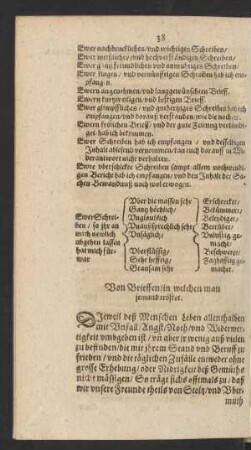 38
Ewer nachdencklichen/vnd wichtiges Schreiben/
Ewer weitläufftiges/vnd hochverständigen Schreiben/
Ewer gantz freundlichen vnd anmühtiges Schreiben/
Ewer kluges/vnd vernünfftigen Schreiben hab ich em-
pfangen.
Ewern angenehmen/vnd langgewünschten Brieff.
Ewern kurtzweiligen/vnd lustigen Brieff.
Ewer glimpffliches/vnd großgünstiges Schreiben hab ich
empfangen/vnd darauß verstanden/wie die nach etc.
Ewern frölichen Brieff/vnd der gute Zeitung verkündi-
get hab ich bekommen.
Ewer Schreiben hab ich empfangen/vnd desselbigen
Inhalt ablesend vernommen/kan auch darauff in
verantwort nicht verhalten.
Ewre überschickte Schreiben sampt allem nothwendi-
gen Bericht hab ich empfangen/vnd den Inhalt der Sa-
chen Bewandnuß nach wol erwogen.
Ewer Schrei-
ben/so ihr an
mich newlich
abgehen lassen
hat mich für-
war
Vber die massen sehr
Gantz höchlich/
Vnglaublich
Vnaußsprechlich sehr
Vnsäglich/
Vberflüssig/
Sehr hefftig/
Grausam sehr
Erschrecket/
Bekümmert/
Beleydiget/
Betrübet/
Vnlustig ge-
macht/
Beschweret/
Zaghafftig ge-
machet.
Von Brieffen/in welchen man
jemand tröstet.
Dieweil deß Menschen Leben allenthalben
mit Vnfall/Angst/Noth/vnd Widerwer-
tigkeit vmbgeben ist/vn aber jr wenig auß vielen
zu befinden/die mit jhrem Stand vnd Beruff zu
frieden/vnd die täglichen Zufälle entweder ohne
grosse Erhebung/oder Nidrigkeit deß Gemüths
nicht mässigen/So trägt sichs offtmals zu/daß
wir vnsere Freunde theils von Stoltz/vnd Vber-
muth